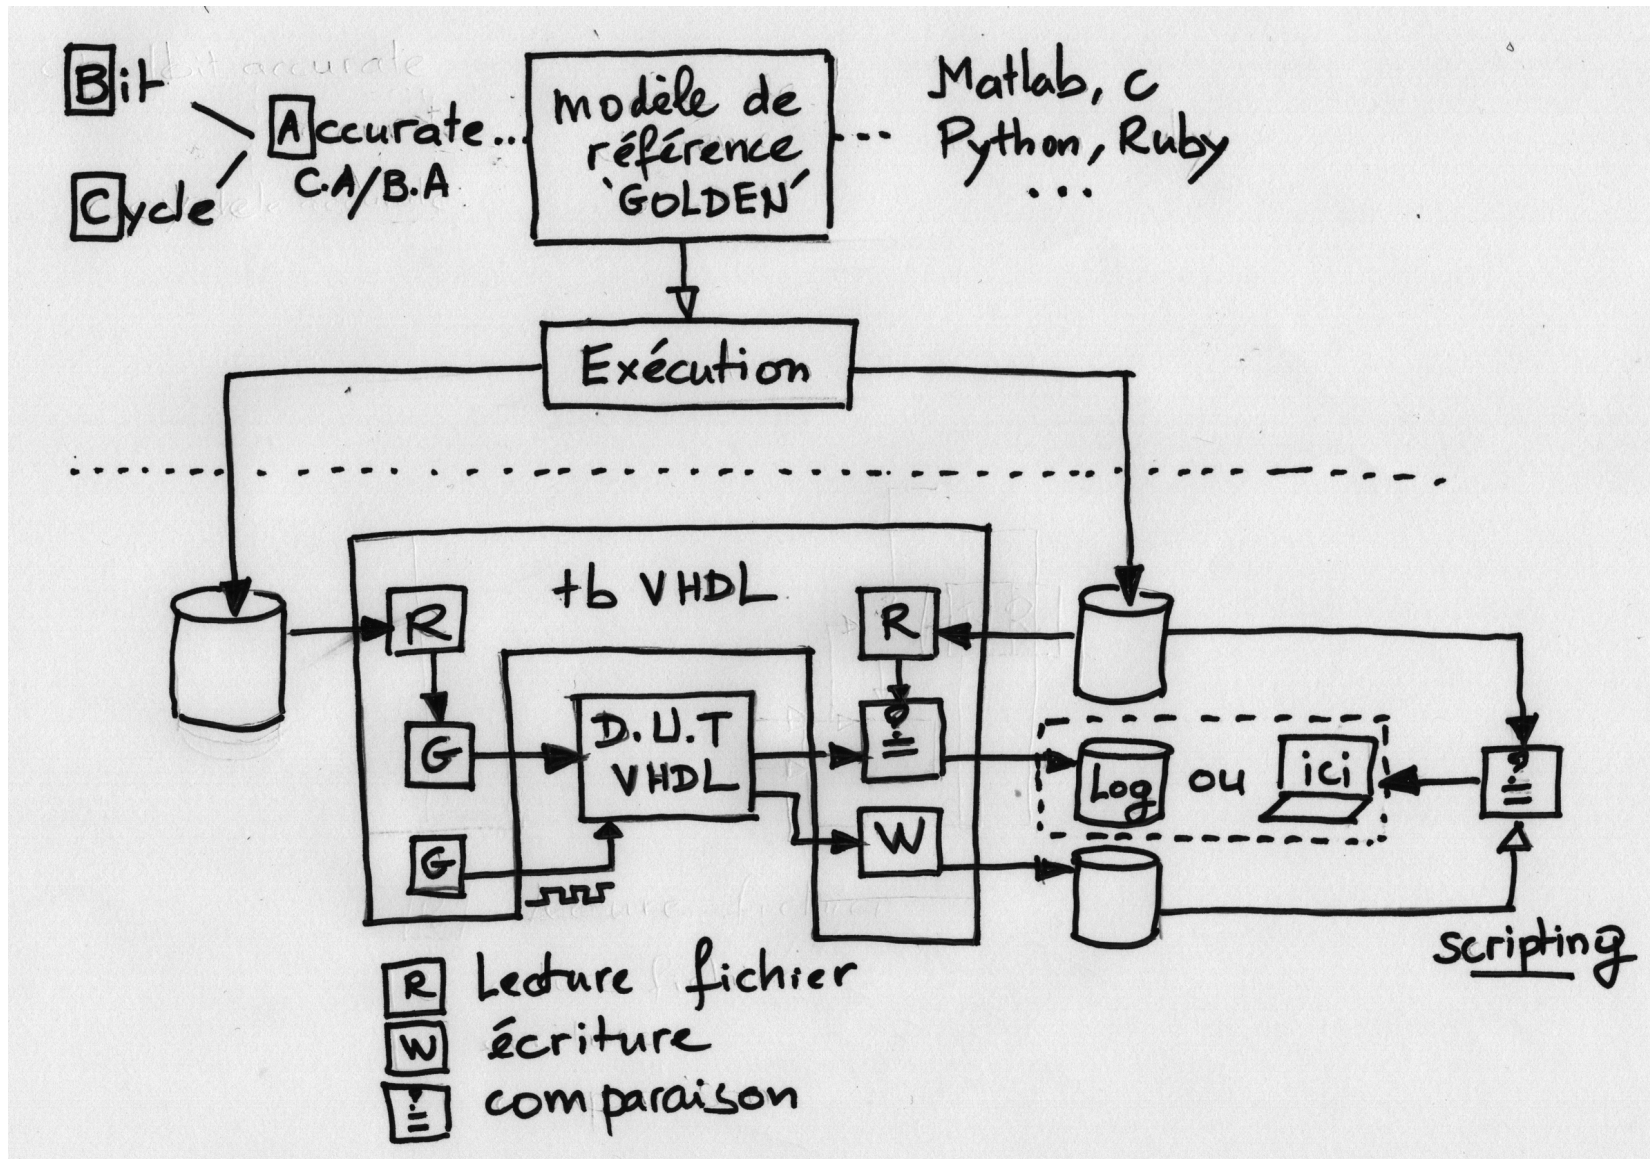 Bit
Cycle
Accurate...
C.A/B.A
modèle de
référence
'GOLDEN'
Matlab, C
Python, Ruby
...
Exécution
tb VHDL
R
R
G
D.U.T
VHDL
?
=
Log
ou
ici
?
=
G
W
scripting
R Lecture fichier
W écriture
?
= comparaison